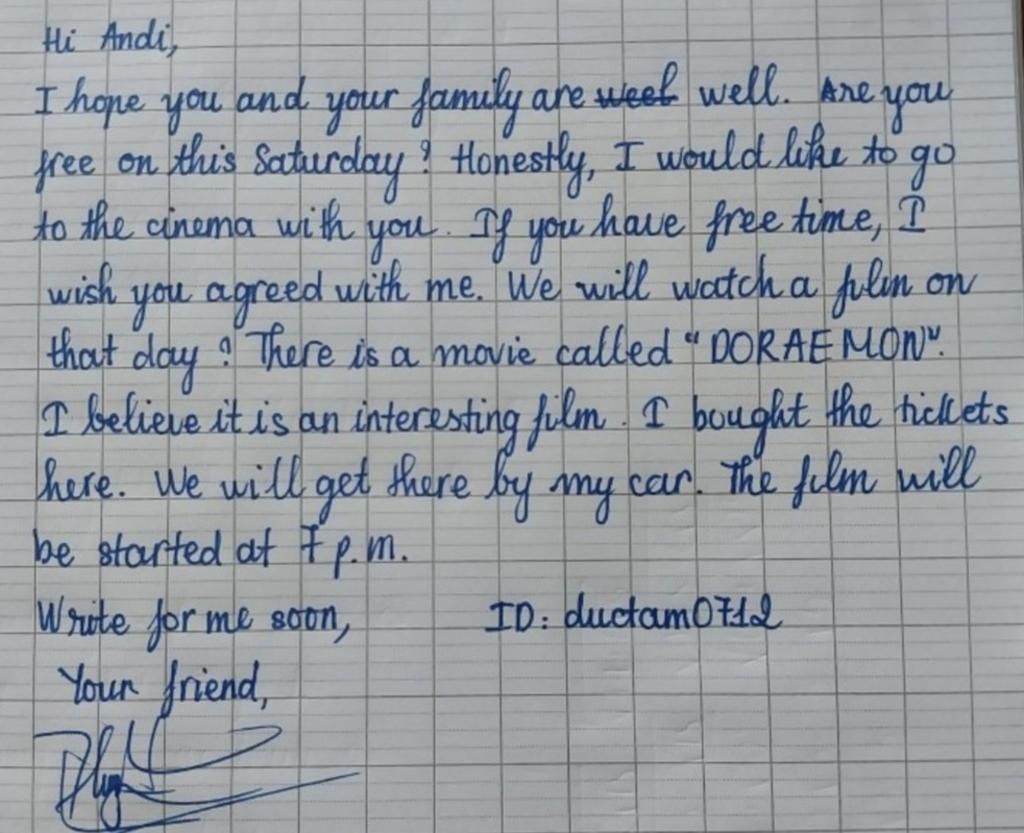 Hi Andi,
I hope you and your family are weel well. Are you
free on this Saturday? Honestly, I would like to go
to the cinema with you. If you have free time, I
wish you agreed with me. We will watch a film on
that day? There is a movie called "DORAEMON".
I believe it is an interesting film. I bought the tickets
here. We will get there by my car. The film will
be started at 7 p.m.
Write for me soon, ID: ductam0712
Your friend,